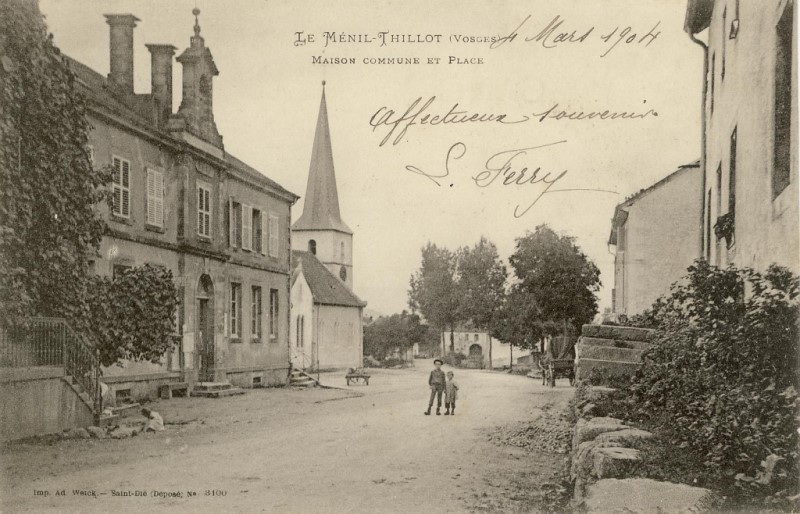 Le Ménil-Thillot (Vosges) 4 Mars 1904
Maison commune et Place
affectueux souvenir
L. Ferry
Imp. Ad. Weick - Saint-Dié (Déposé) No 3100